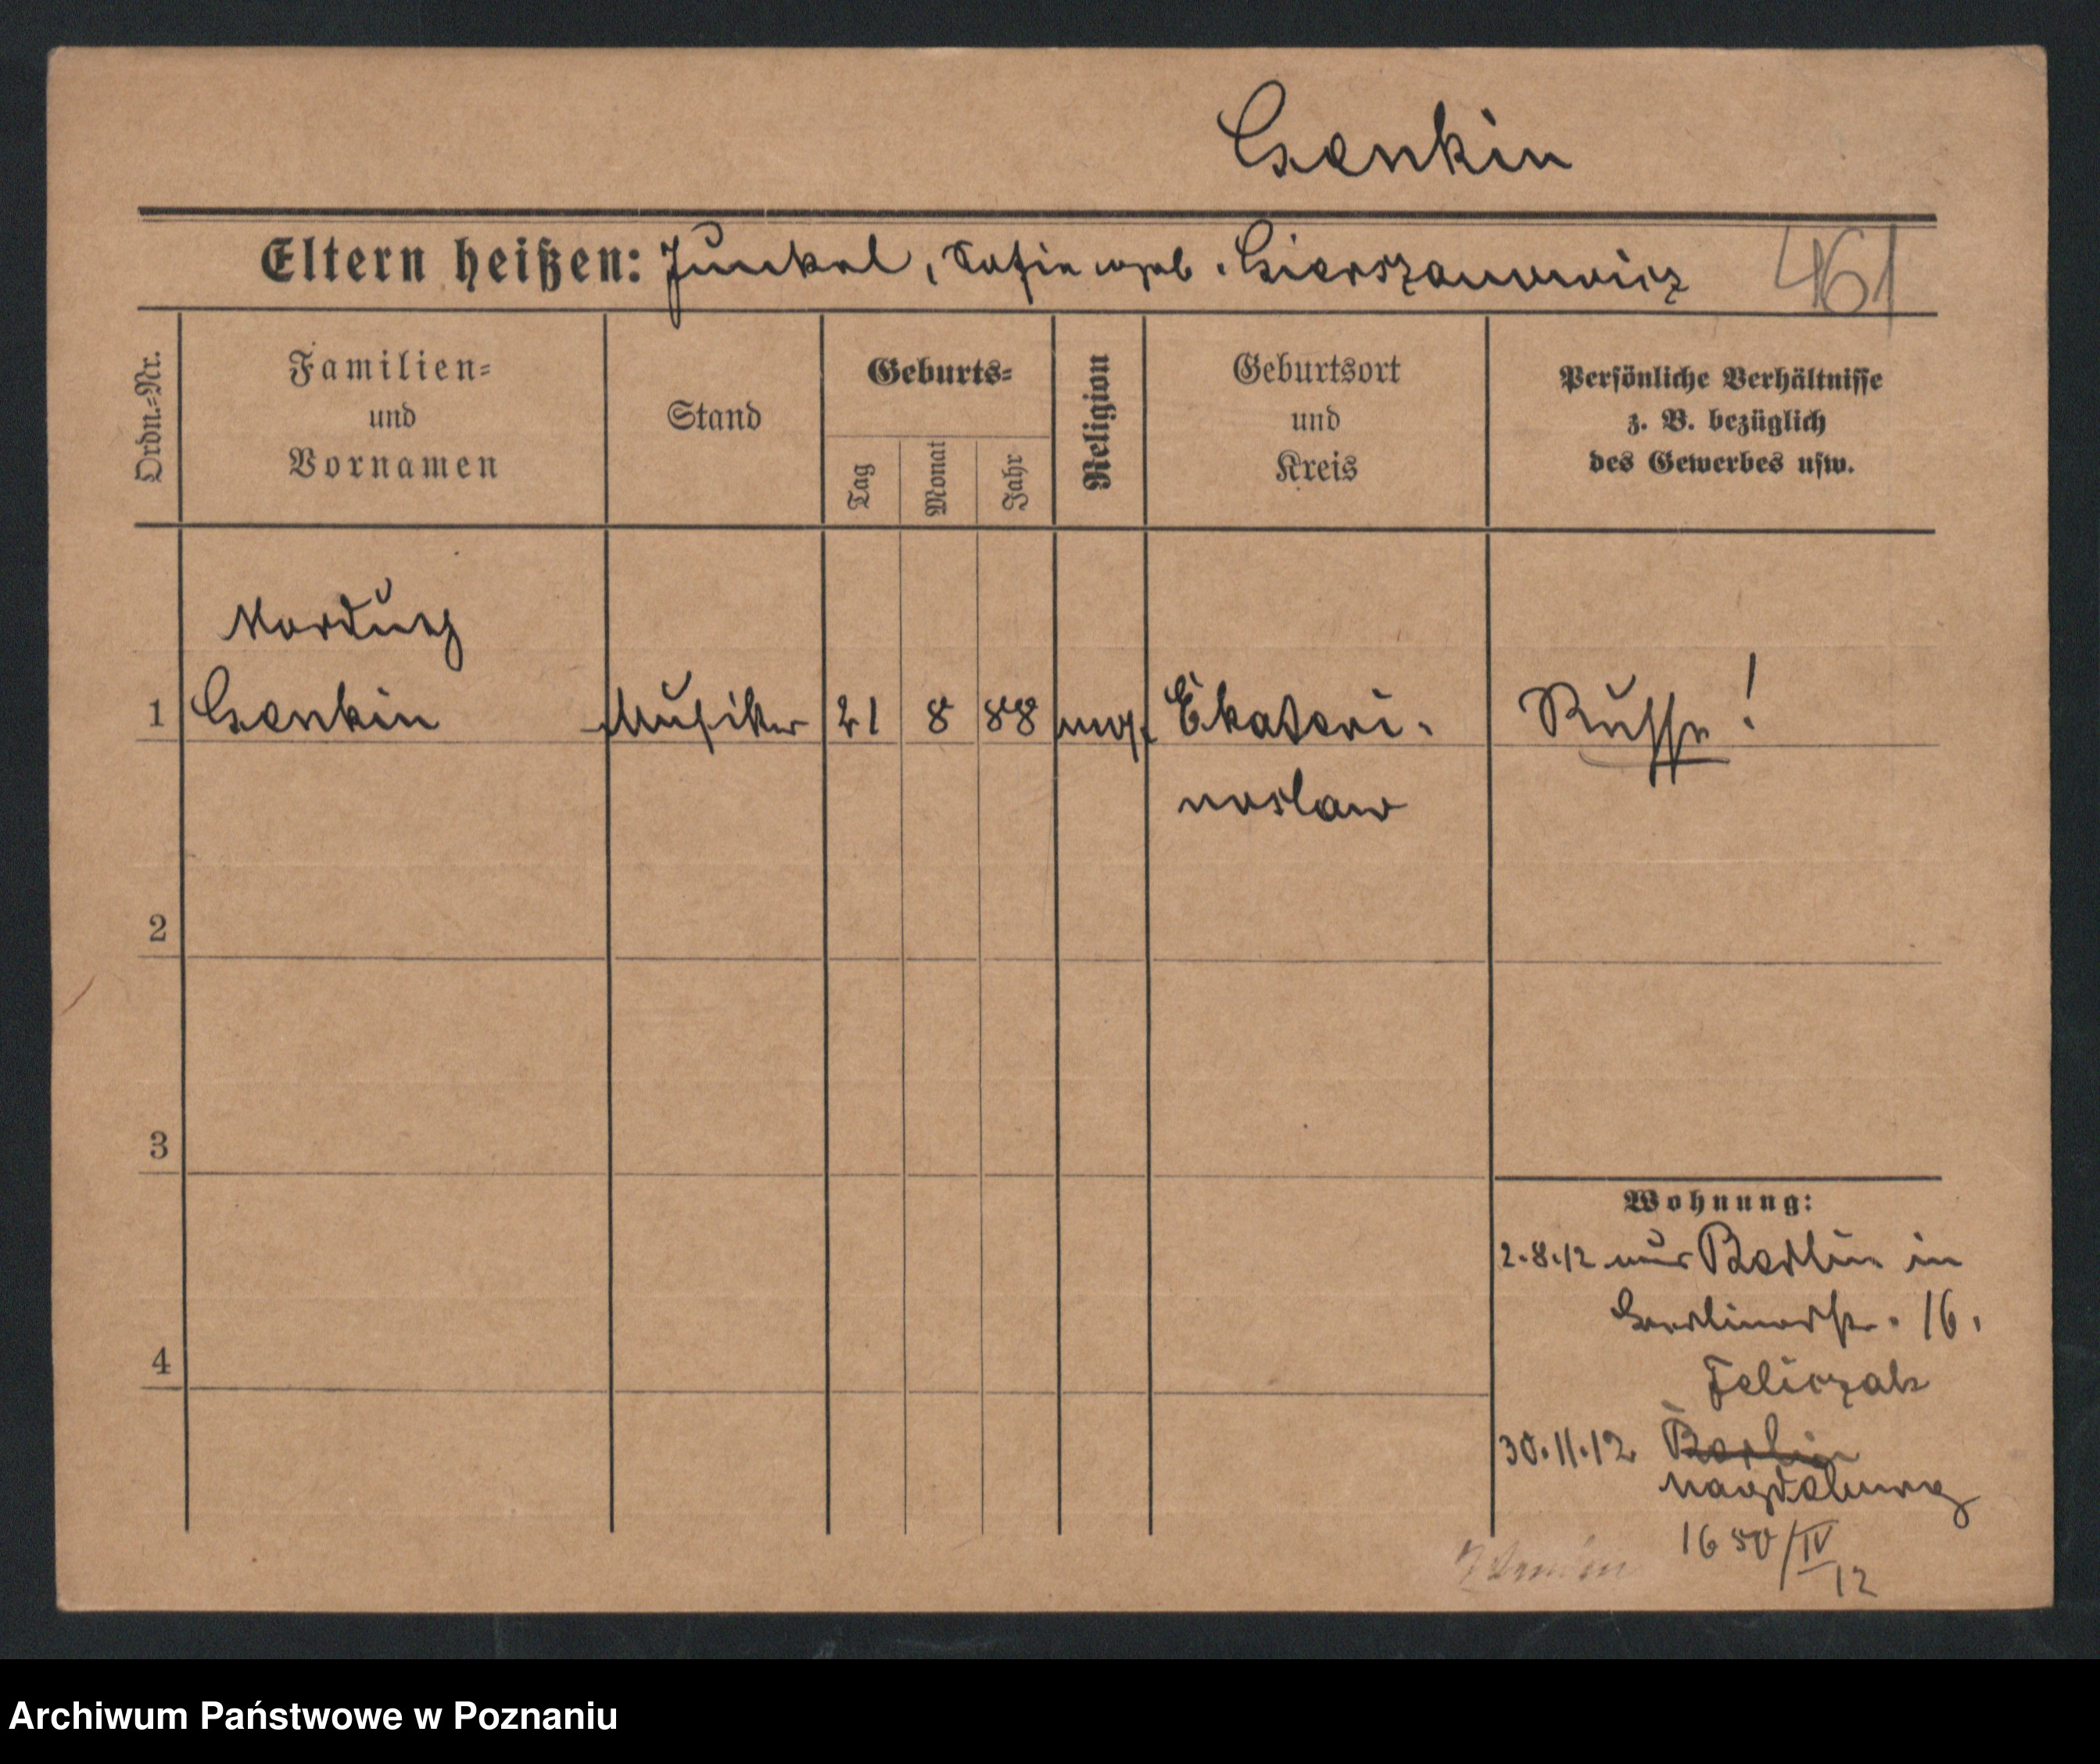 Genkin
Eltern heißen: Junkel, Sofie geb. Gierszanowicz 461
Ordn.-Nr.
Familien-
und
Vornamen
Stand
Geburts-
Tag
Monat
Jahr
Religion
Geburtsort
und
Kreis
Persönliche Verhältnisse
z. B. bezüglich
des Gewerbes usw.
Morduch
1 Genkin Musiker 21 8 88 mos. Ekateri-
noslaw
Russe!
2
3
4
Wohnung:
2.8.12 aus Berlin in
Berlinerstr. 16.
Feliczak
30.11.12 Berlin
Magdeburg
1650/IV
12
Archiwum Państwowe w Poznaniu